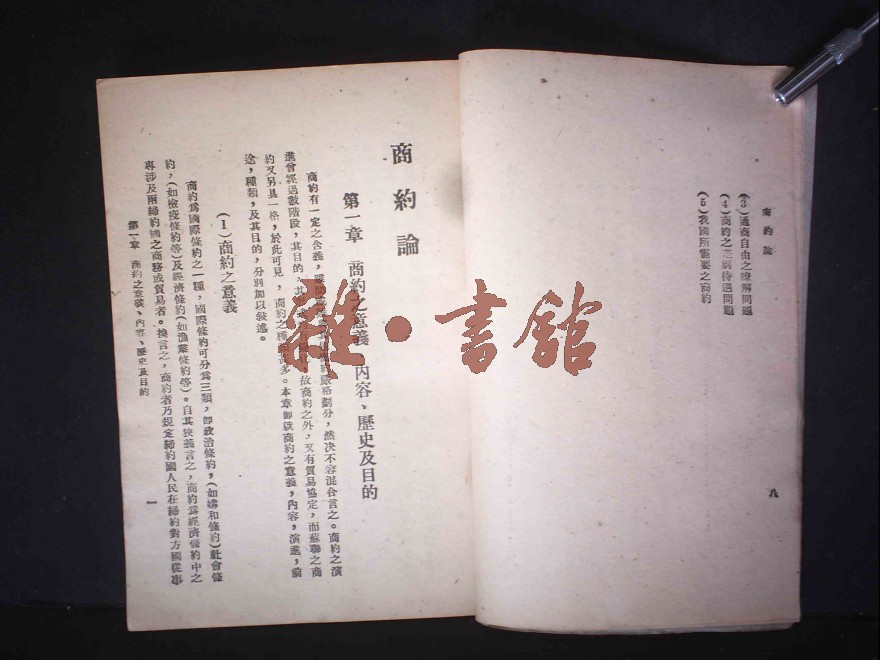 商約論
(3)通商自由之瞭解問題
(4)商約之差別待遇問題
(5)我國所需要之商約
八
商約論
第一章 商約之意義、內容、歷史及目的
商約有一定之含義,嚴格劃分,然决不容混合言之。商約之演
進曾經過數階段,其目的,其故商約之外,又有貿易協定,而蘇聯之商
約又另具一格,於此可見,商約之種多。本章卽就商約之意義,內容,演進,前
途,種類,及其目的,分別加以敍述。
(1)商約之意義
商約爲國際條約之一種,國際條約可分爲三類,卽政治條約,(如媾和條約)社會條
約,(如檢疫條約等)及經濟條約(如漁業條約等)。自其狹義言之,商約爲經濟條約中之
專涉及兩締約國之商務或貿易者。換言之,商約者乃規定締約國人民在締約對方國從事
第一章 商約之意義、內容、歷史及目的
一
雜·書館